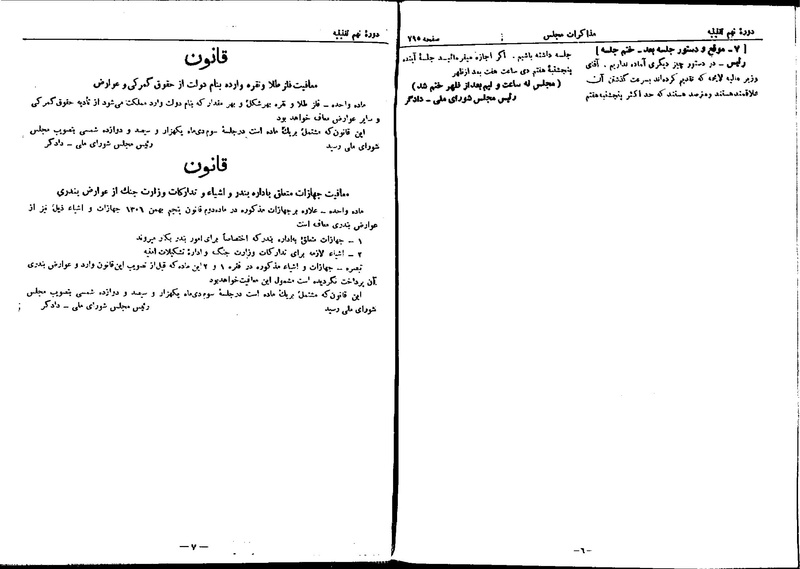 دورهٔ نهم تقنینیه
مذاکرات مجلس
صفحه ۷۹۵
[ ۷ - موقع و دستور جلسه بعد - ختم جلسه ]
رئیس - در دستور چیز دیگری آماده نداریم. آقای
وزیر مالیه لایحه که تقدیم کرده‌اند بسرعت گذشتن آن
علاقمند هستند و مترصد هستند که حد اکثر پنجشنبه هفتم
جلسه داشته باشیم. اگر اجازه میفرمائید جلسهٔ آینده
پنجشنبهٔ هفتم دی ساعت هفت بعد از ظهر
( مجلس نه ساعت و نیم بعد از ظهر ختم شد )
رئیس مجلس شورای ملی - دادگر
-۶-
دورهٔ نهم تقنینیه
قانون
معافیت فلز طلا و نقره وارده بنام دولت از حقوق گمرکی و عوارض
ماده واحده - فلز طلا و نقره بهر شکل و بهر مقدار که بنام دولت وارد مملکت می‌شود از تأدیه حقوق گمرکی
و سایر عوارض معاف خواهد بود
این قانون که مشتمل بر یک ماده است در جلسهٔ سوم دی‌ماه یکهزار و سیصد و دوازده شمسی بتصویب مجلس
شورای ملی رسید رئیس مجلس شورای ملی - دادگر
قانون
معافیت جهازات متعلق باداره بندر و اشیاء و تدارکات وزارت جنگ از عوارض بندری
ماده واحده - علاوه بر جهازات مذکوره در ماده دوم قانون پنجم بهمن ۱۳۰۶ جهازات و اشیاء ذیل نیز از
عوارض بندری معاف است
۱ - جهازات متعلق به‌اداره بندر که اختصاصاً برای امور بندر بکار میروند
۲ - اشیاء لازمه برای تدارکات وزارت جنگ و ادارهٔ تشکیلات امنیه
تبصره - جهازات و اشیاء مذکوره در فقره ۱ و ۲ این ماده که قبل از تصویب این قانون وارد و عوارض بندری
آن پرداخت نگردیده است مشمول این معافیت خواهد بود
این قانون که مشتمل بر یک ماده است در جلسهٔ سوم دی‌ماه یکهزار و سیصد و دوازده شمسی بتصویب مجلس
شورای ملی رسید رئیس مجلس شورای ملی - دادگر
- ۷ -